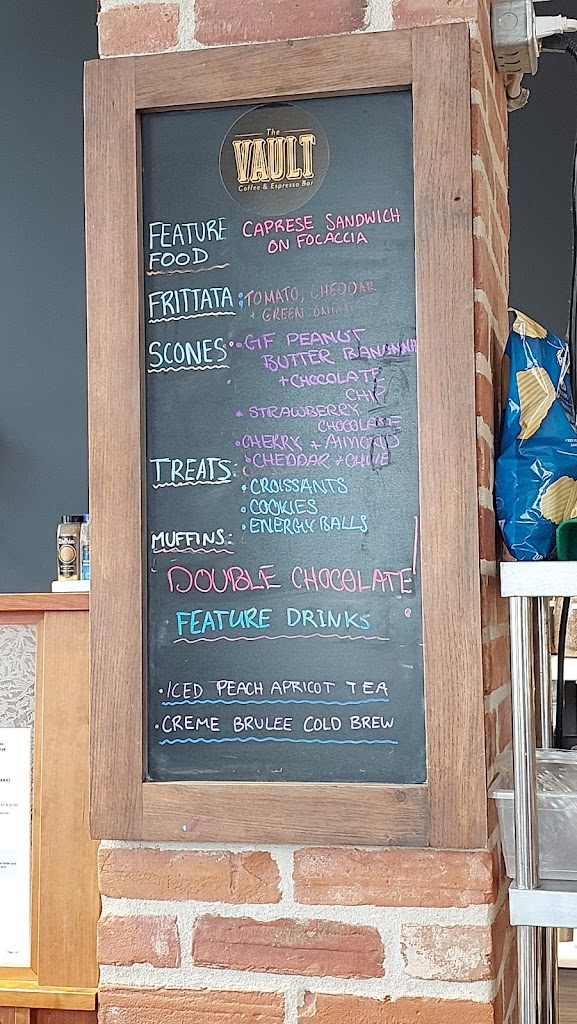 The
VAULT
Coffee & Espresso Bar
FEATURE FOOD
CAPRESE SANDWICH
ON FOCACCIA
FRITTATA: TOMATO, CHEDDAR
+ GREEN ONION
SCONES • GF PEANUT
BUTTER BANANNA
+ CHOCOLATE
CHIP
• STRAWBERRY
CHOCOLATE
• CHERRY + ALMOND
• CHEDDAR + CHIVE
TREATS:
• CROISSANTS
• COOKIES
• ENERGY BALLS
MUFFINS:
DOUBLE CHOCOLATE
FEATURE DRINKS
• ICED PEACH APRICOT TEA
• CREME BRULEE COLD BREW